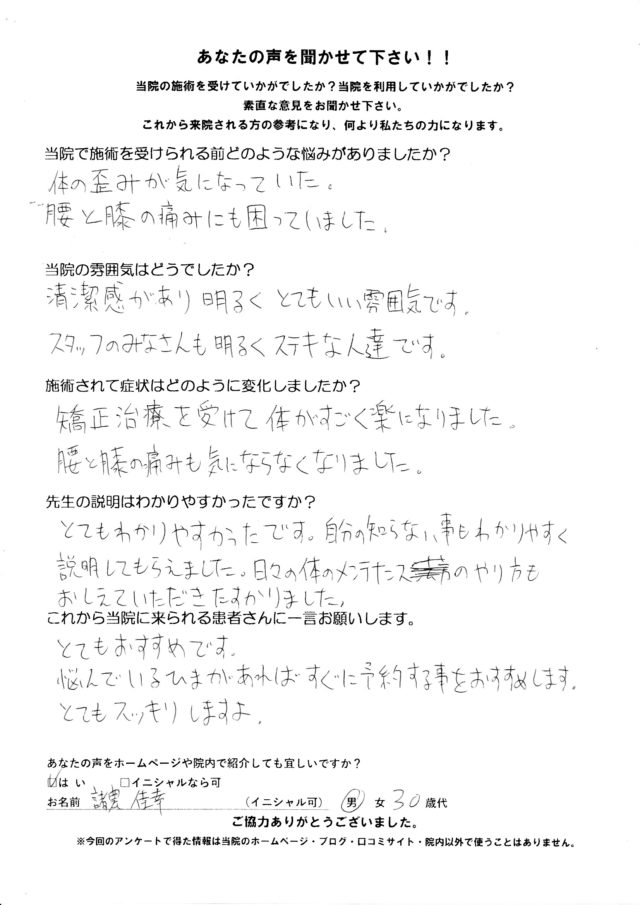 あなたの声を聞かせて下さい！！
当院の施術を受けていかがでしたか？当院を利用していかがでしたか？
素直な意見をお聞かせ下さい。
これから来院される方の参考になり、何より私たちの力になります。
当院で施術を受けられる前どのような悩みがありましたか？
体の歪みが気になっていた。
腰と膝の痛みにも困っていました。
当院の雰囲気はどうでしたか？
清潔感があり明るくとてもいい雰囲気です。
スタッフのみなさんも明るくステキな人達です。
施術されて症状はどのように変化しましたか？
矯正治療を受けて体がすごく楽になりました。
腰と膝の痛みも気にならなくなりました。
先生の説明はわかりやすかったですか？
とてもわかりやすかったです。自分の知らない事もわかりやすく
説明してもらえました。日々の体のメンテナンスのやり方も
おしえていただきたすかりました。
これから当院に来られる患者さんに一言お願いします。
とてもおすすめです。
悩んでいるひまがあればすぐに予約する事をおすすめします。
とてもスッキリしますよ。
あなたの声をホームページや院内で紹介しても宜しいですか？
☑はい　□イニシャルなら可
お名前 佳幸 （イニシャル可） 男 女 30歳代
ご協力ありがとうございました。
※今回のアンケートで得た情報は当院のホームページ・ブログ・口コミサイト・院内以外で使うことはありません。